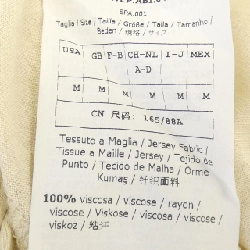 Taglia / Size / Taille / Größe / Talla / Tamanho /
Beden / 规格 / サイズ
USA GB F-B CH-NL I-J MEX
A-D
M M M M M
CN 号码: 165/88A
Tessuto a Maglia / Jersey Fabric /
Tissue a Maille / Jersey / Tejido de
Punto / Tecido de Malha / Orme
Kumaş / 针织面料
100% viscosa / viscose / rayon /
viscose / Viskose / viscosa / viscose /
viskoz / 粘纤